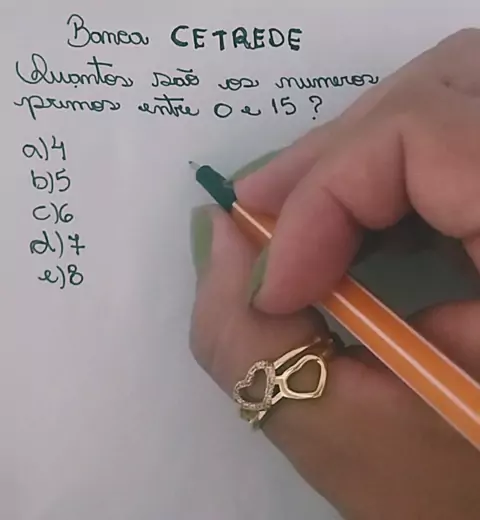 Banca CETREDE
Quantos são os numeros
primos entre 0 e 15?
a)4
b)5
c)6
d)7
e)8